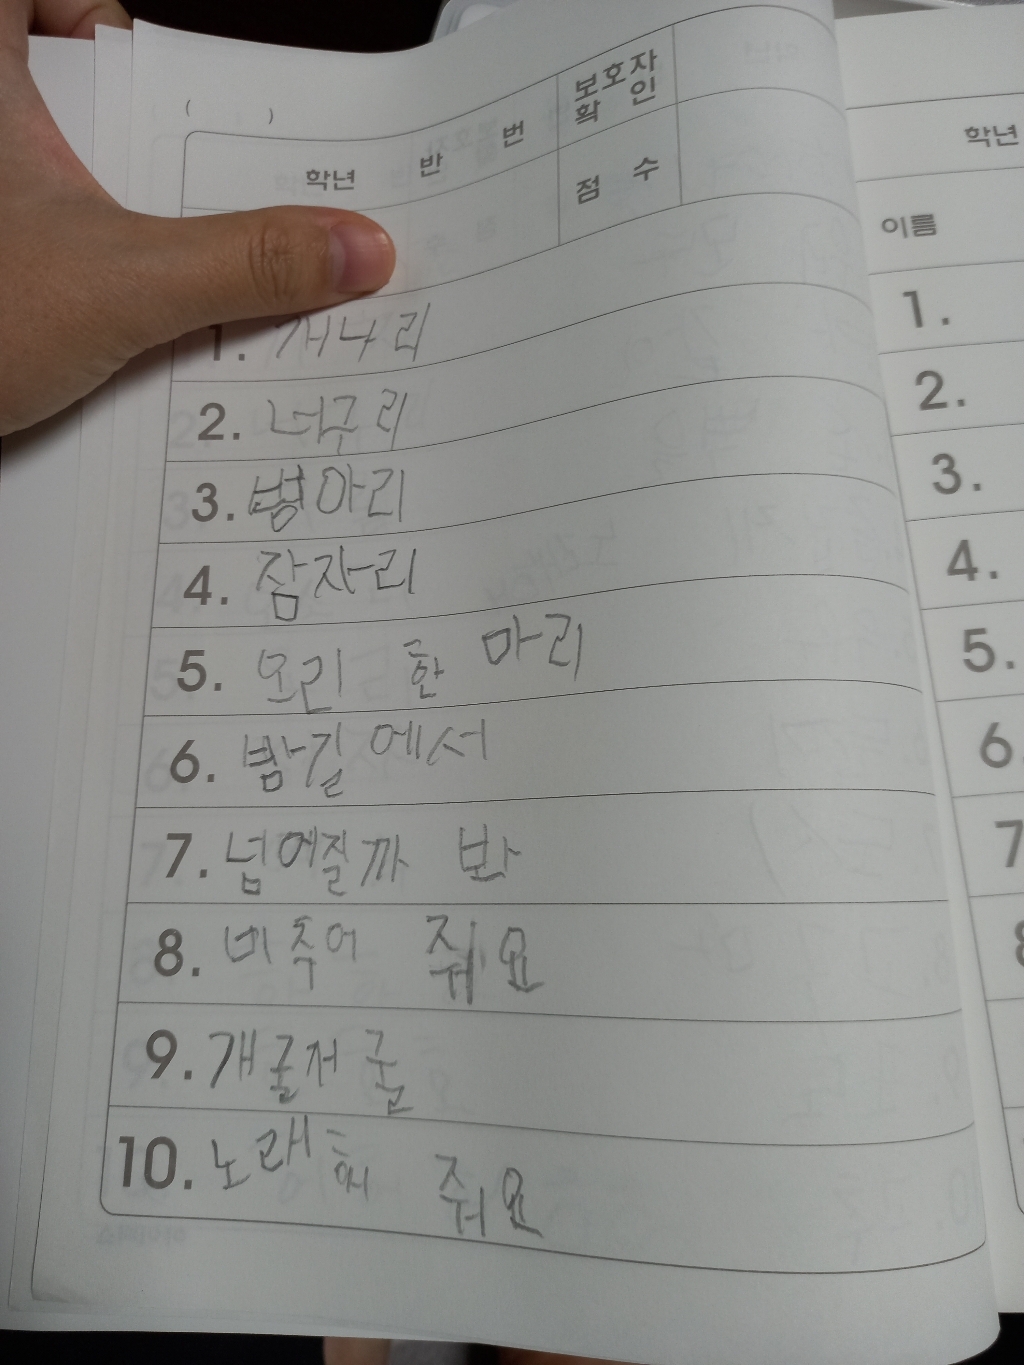 ( )
학년 반 번 보호자 확인
점수
1. 개나리
2. 너구리
3. 병아리
4. 잠자리
5. 오리 한 마리
6. 밤길에서
7. 넙어질까 봐
8. 비추어 줘요
9. 개굴저굴
10. 노래해 줘요
학년
이름
1.
2.
3.
4.
5.
6.
7
8